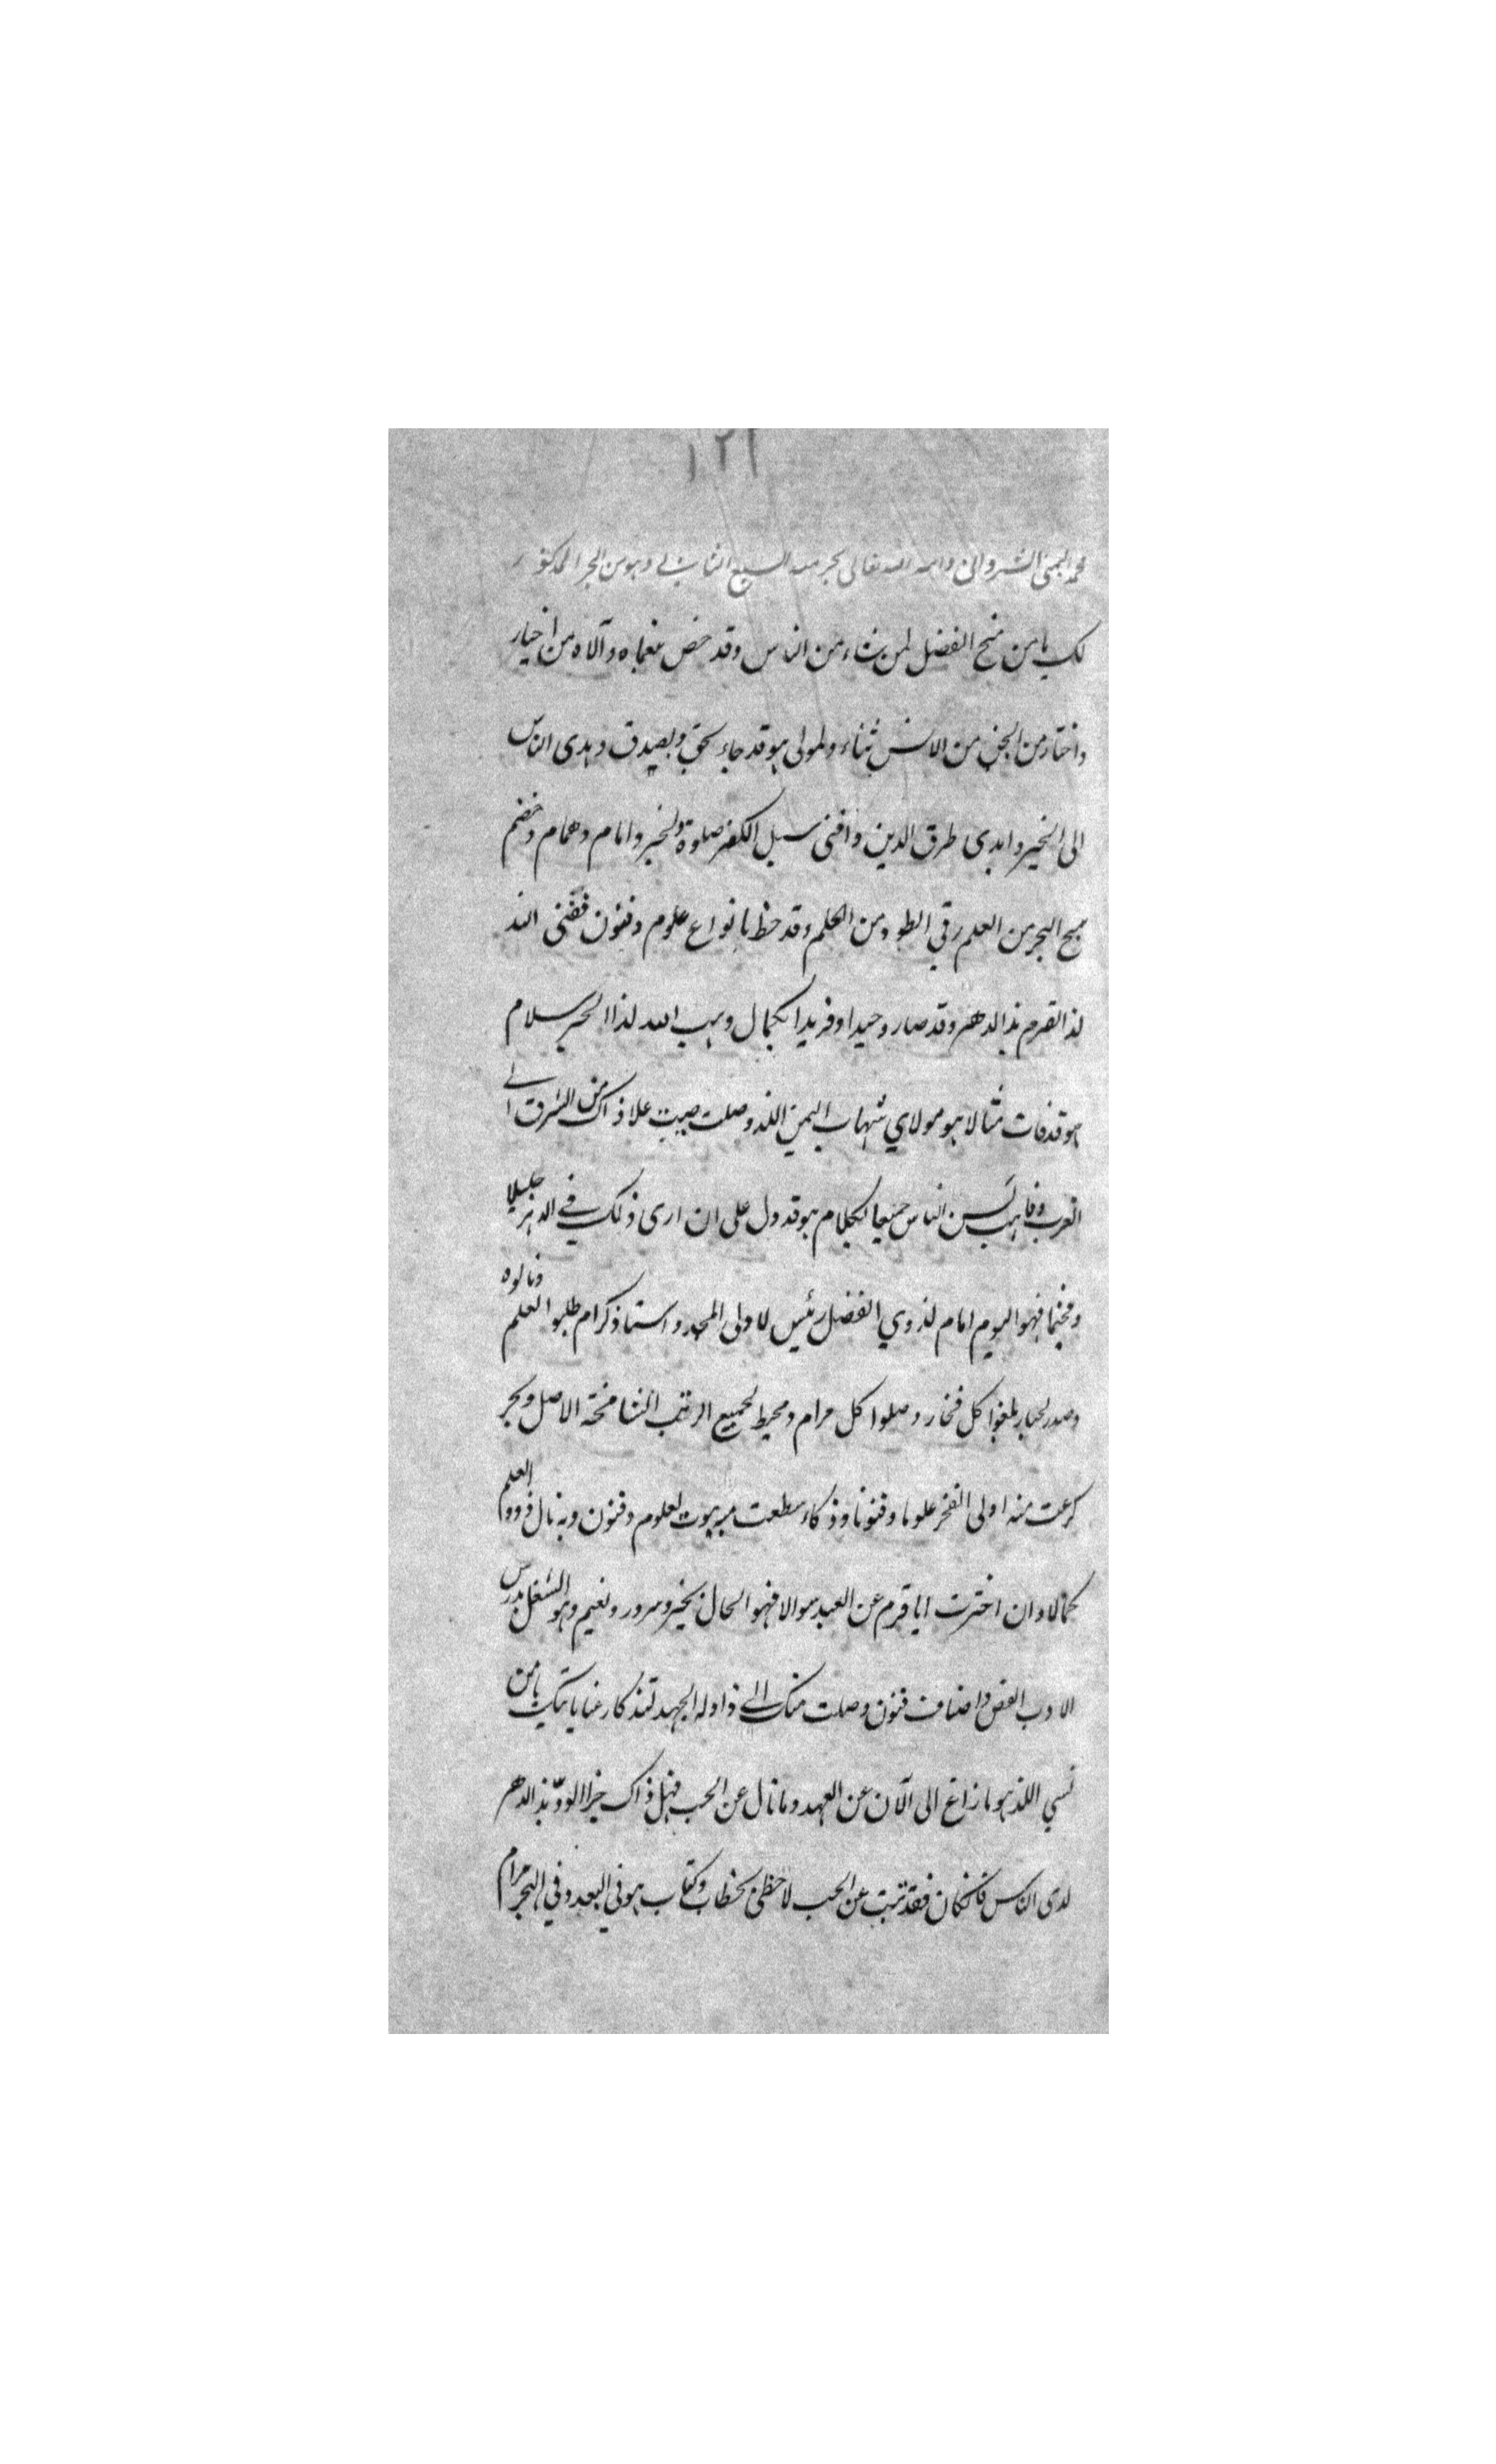 ١٢١
محمد اليمني الشرواني دامه الله تعالى بحرمه السبع المثاني وهو من البحر المذكور
لك يا من منح الفضل لمن شاء من الناس وقد خص بنعماه وآلاه من اخيار
واختار من الجن من الانس ثناء ولمولى هو قد جاء بحق وبصدق وهدى الناس
الى الخير وابدى طرق الدين وافنى سبل الكفر صلوة ولخبر وامام وهمام وخضم
سبح البحر من العلم رقي الطود من الحلم وقد حظ بانواع علوم وفنون ففنى الند
لذا القرم بذا الدهر وقد صار وحيدا وفريدا بكمال وهب الله لذا الحبر سلام
هو قد فات مثالا هو مولاي شهاب اليمن اللذ وصلت صيت علا ذاك من الشرق الى
الغرب وفا لسن الناس جميعا لكلام هو قد دل على ان ارى ذلك في الدهر جليلا
وفخيما فهو اليوم امام لذوي الفضل رئيس لاولى المجد واستاذ كرام طلبوا العلم ونالوه
وصدر لكبار بلغوا كل فخار وصلوا كل مرام ومحيط لجميع الرتب الشامخة الاصل وبحر
كرعت منه اولى الفخر علوما وفنونا وذكاء سطعت بيوت لعلوم وفنون وبه نال ذووا العلم
كمالا وان اخترت ايا قرم عن العبد سوالا فهو الحال بخير وسرور ونعيم وهو الشغل بدرس
الادب الغض واصناف فنون وصلت منك الى ذا وله الجهد لتذكار عنايايتك يا من
نسي اللذ هو ما زاغ الى الآن عن العهد وما نال عن الحب فهل ذاك جزا الود بذا الدهر
لدى الناس فان كان فقد تبت عن الحب لاحظى بخطاب وكتاب هو في البعد وفي الهجر مرام